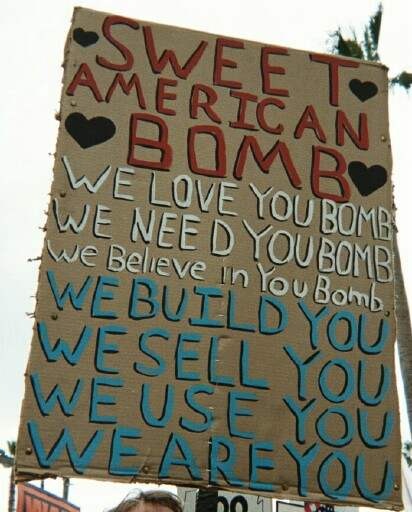 SWEET
AMERICAN
BOMB
WE LOVE YOU BOMB
WE NEED YOU BOMB
We Believe in You Bomb.
WE BUILD YOU
WE SELL YOU
WE USE YOU
WE ARE YOU